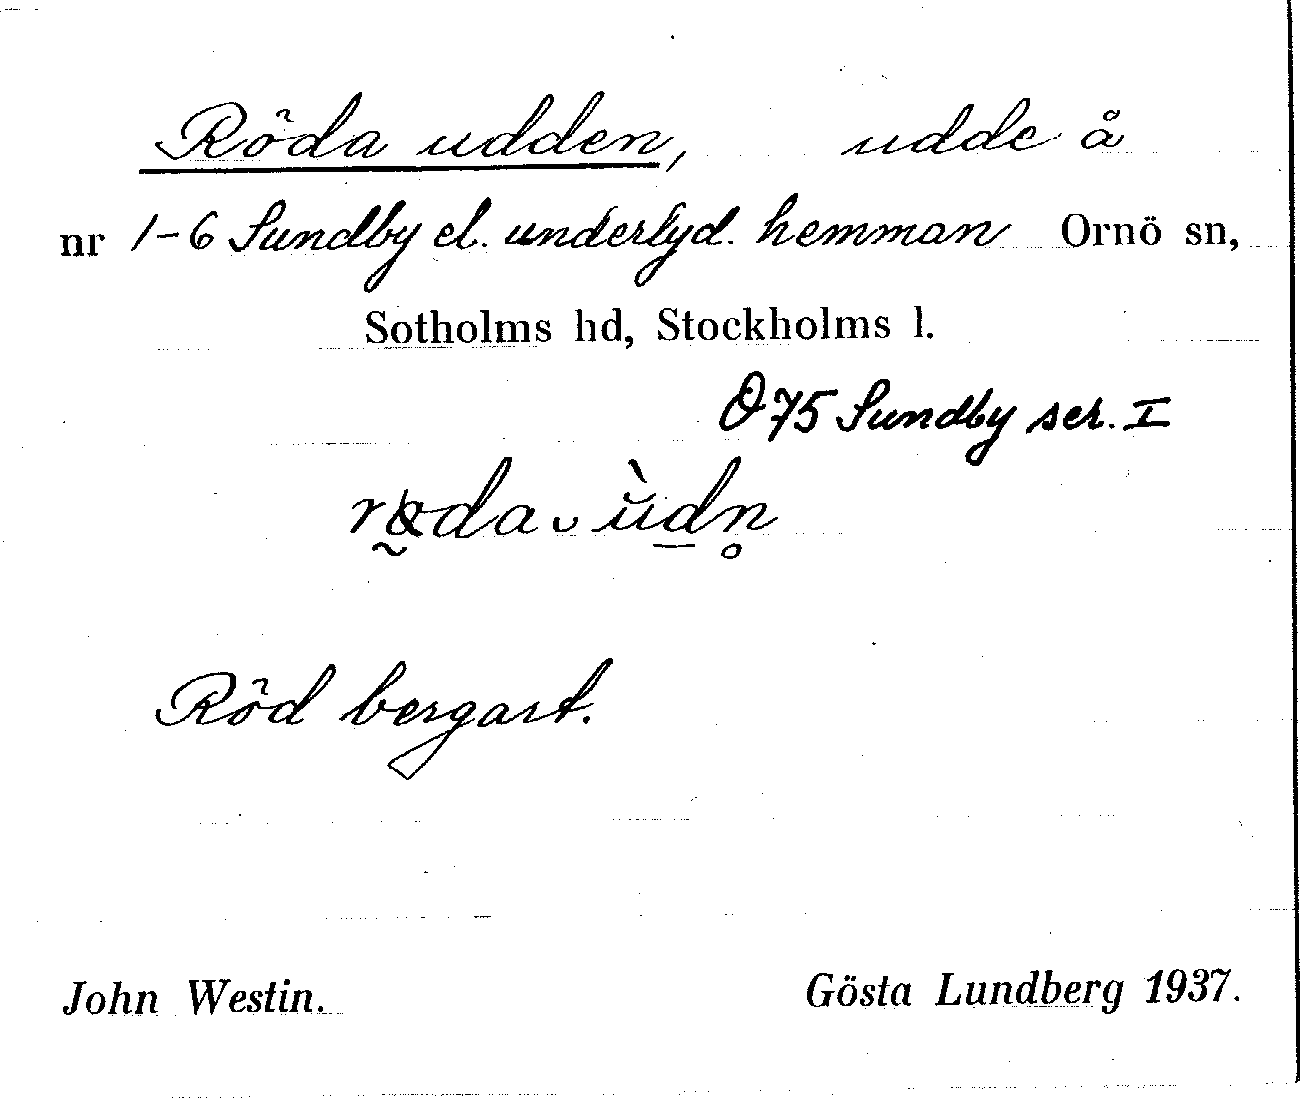 Röda udden, udde å
nr 1-6 Sundby el. underlyd. hemman Ornö sn,
Sotholms hd, Stockholms l.
Ö 75 Sundby ser. I
Röd bergart.
John Westin. Gösta Lundberg 1937.